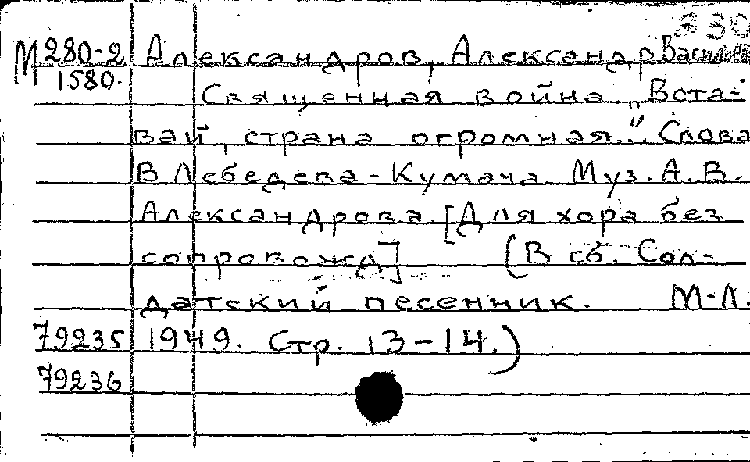 330
М 280-2 Александров, Александр Василье
1580.
Священная война „Вста-
вай, страна огромная." Слова
В. Лебедева-Кумача. Муз. А. В.
Александрова. [Для хора без
сопровожд] (В сб. Сол-
датский песенник. М-Л.
79235 1949. Стр. 13-14.)
79236